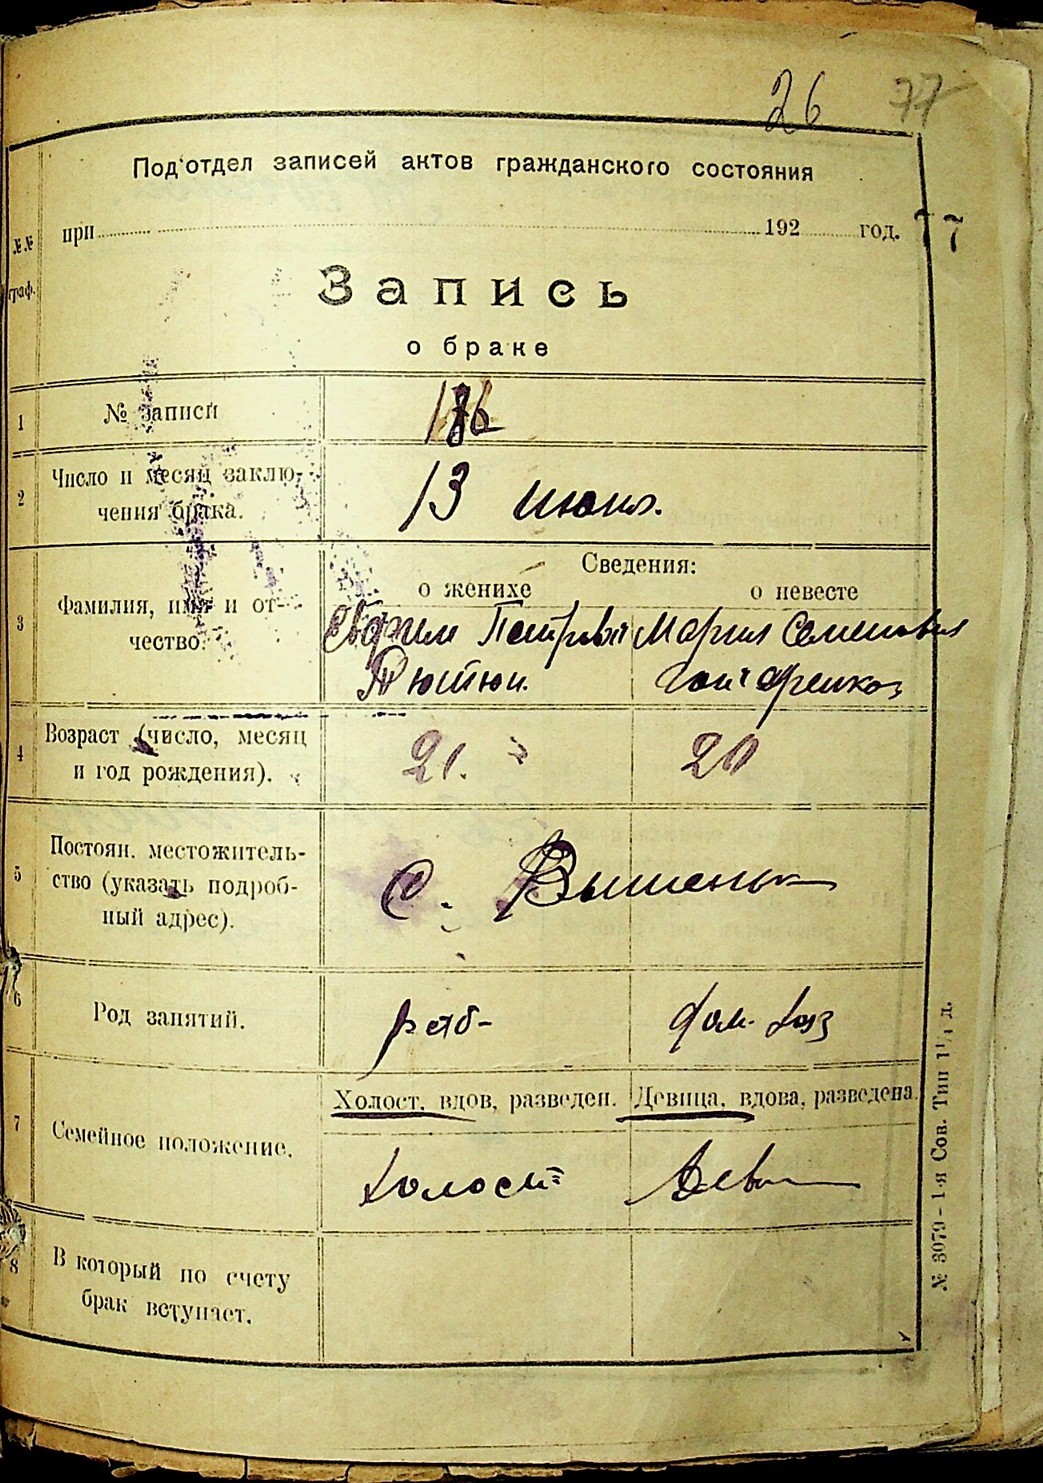 26 77
Под'отдел записей актов гражданского состояния
№№ граф.
при 192 год. 77
Запись
о браке
1 № записи 186
2 Число и месяц заклю-
чения брака. 13 июня.
Сведения:
о женихе о невесте
3 Фамилия, имя и от-
чество. Евфим Петрович Мария Семеновна
Тютюн. Гончаренкова
4 Возраст (число, месяц
и год рождения). 21. 20
5 Постоян. местожитель-
ство (указать подроб-
ный адрес). С. Вишеньк
6 Род занятий. раб- дом. хоз
Холост, вдов, разведен. Девица, вдова, разведена.
7 Семейное положение.
холост Дев
8 В который по счету
брак вступает.
№ 3079 - 1-я Сов. Тип 1¹/₄ д.